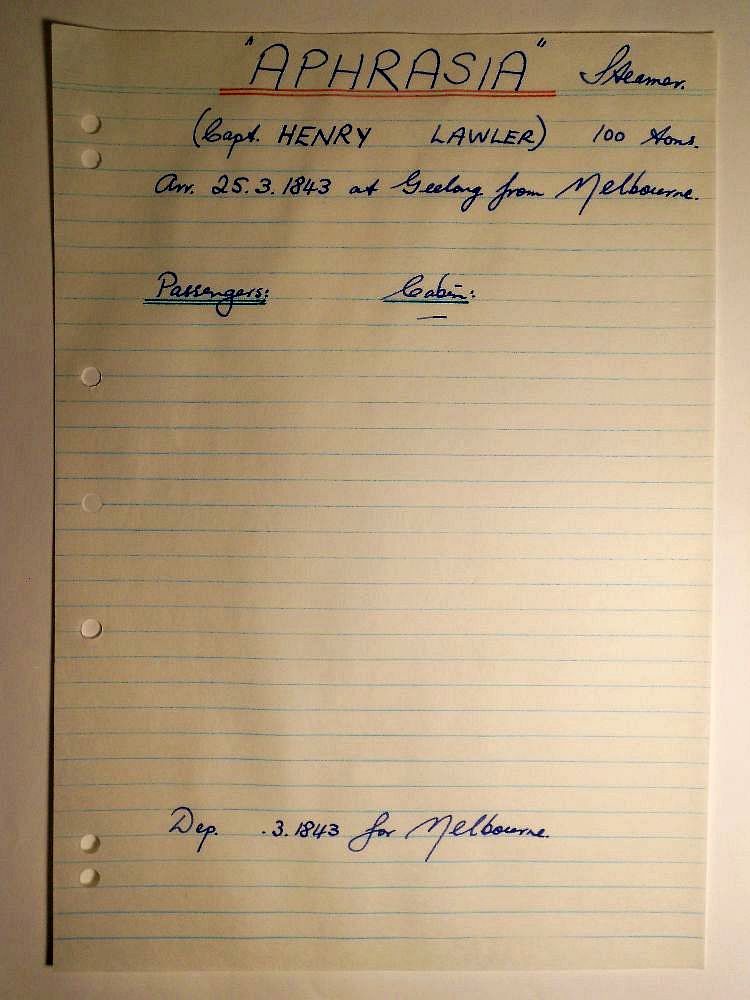 "APHRASIA" Steamer.
(Capt. HENRY LAWLER) 100 tons.
Arr. 25.3.1843 at Geelong from Melbourne.
Passengers: Cabin:
—
Dep. .3.1843 for Melbourne.